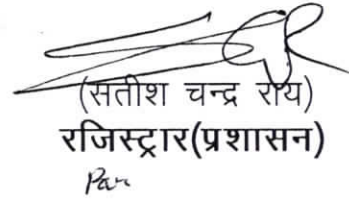 (सतीश चन्द्र राय)
रजिस्ट्रार(प्रशासन)